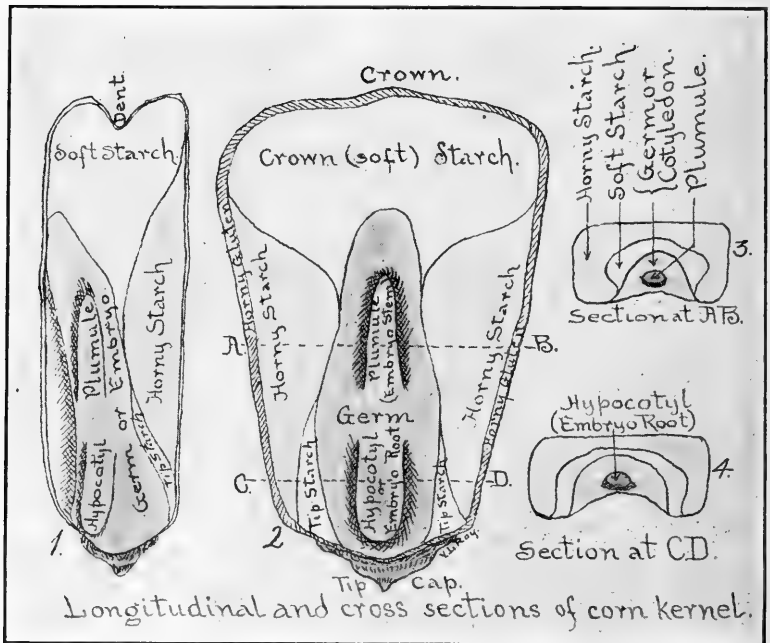 Dent.
Soft Starch.
Plumule
Germ or Embryo
Horny Starch
Hypocotyl
Tip Starch
1.
Crown.
Crown (soft) Starch.
Horny Gluten
Horny Starch
A.
B.
Plumule
(Embryo Stem)
Horny Starch
Horny Gluten
Germ
C.
D.
Tip Starch
Hypocotyl
or
Embryo Root
Tip Starch
2
Tip Cap.
Horny Starch
Soft Starch.
{Germ or
Cotyledon.
Plumule.
3.
Section at AB.
Hypocotyl
(Embryo Root)
4.
Section at C.D.
Longitudinal and cross sections of corn kernel.